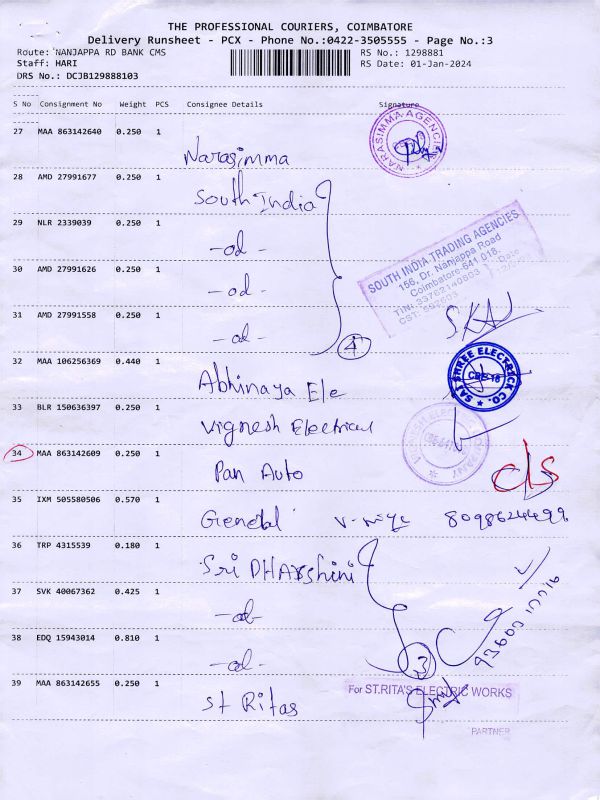 THE PROFESSIONAL COURIERS, COIMBATORE
Delivery Runsheet - PCX - Phone No.:0422-3505555 - Page No.:3
Route: NANJAPPA RD BANK CMS
RS No.: 1298881
Staff: HARI
RS Date: 01-Jan-2024
DRS No.: DCJB129888103
S No Consignment No Weight PCS Consignee Details Signature
27 MAA 863142640 0.250 1
NARASIMMA AGENCIES
Narasimma
28 AMD 27991677 0.250 1
South India
29 NLR 2339039 0.250 1
-od-
SOUTH INDIA TRADING AGENCIES
156, Dr. Nanjappa Road
Coimbatore-641 018.
30 AMD 27991626 0.250 1
-od-
31 AMD 27991558 0.250 1
-od-
4
32 MAA 106256369 0.440 1
SAI SHREE ELECTRICK CO.
Abhinaya Ele
33 BLR 150636397 0.250 1
Vignesh Electrical
34 MAA 863142609 0.250 1
Pan Auto
cls
35 IXM 505580506 0.570 1
8098624499
36 TRP 4315539 0.180 1
Sri DHARshini
37 SVK 40067362 0.425 1
-od-
38 EDQ 15943014 0.810 1
-od-
3
39 MAA 863142655 0.250 1
For ST.RITA'S ELECTRIC WORKS
St Ritas
PARTNER